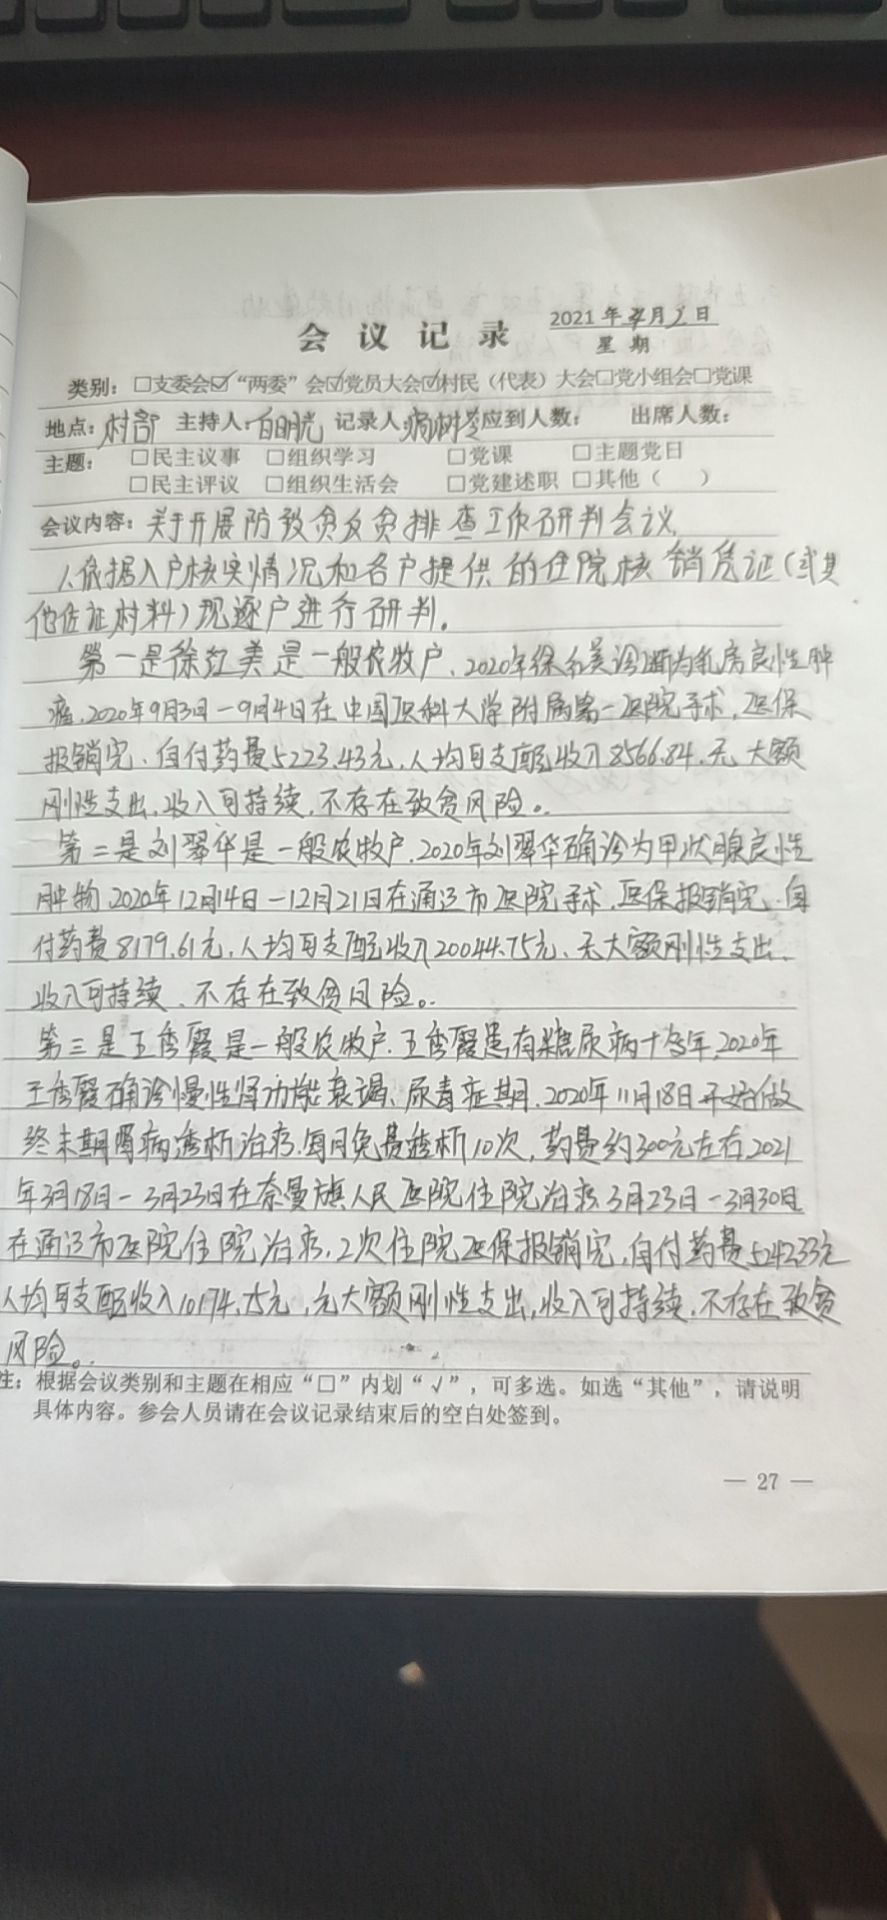 会议记录
2021年 月 日
星期
类别：□支委会☑“两委”会☑党员大会☑村民（代表）大会□党小组会□党课
地点：村部 主持人：白明光 记录人： 应到人数： 出席人数：
主题： □民主议事 □组织学习 □党课 □主题党日
□民主评议 □组织生活会 □党建述职 □其他（ ）
会议内容：关于开展防致贫反贫排查工作研判会议.
1.依据入户核实情况和各户提供的住院核销凭证（或其
他佐证材料）现逐户进行研判。
第一是徐红美是一般农牧户、2020年徐红美诊断为乳房良性肿
瘤.2020年9月3日-9月4日在中国医科大学附属第一医院手术，医保
报销完、自付药费5223.43元，人均可支配收入8566.84.无大额
刚性支出、收入可持续，不存在致贫风险。
第二是刘翠华是一般农牧户，2020年刘翠华确诊为甲状腺良性
肿物2020年12月14日-12月21日在通辽市医院手术，医保报销完、自
付药费8179.61元，人均可支配收入20044.75元、无大额刚性支出、
收入可持续、不存在致贫风险。
第三是王秀霞是一般农牧户.王秀霞患有糖尿病十多年，2020年
王秀霞确诊慢性肾功能衰竭、尿毒症期，2020年11月18日开始做
终末期肾病透析治疗，每月免费透析10次，药费约300元左右，2021
年3月18日-3月23日在奈曼旗人民医院住院治疗，3月23日-3月30日
在通辽市医院住院治疗，2次住院医保报销完，自付药费5242.33元
人均可支配收入10174.75元，无大额刚性支出，收入可持续，不存在致贫
风险。
注：根据会议类别和主题在相应“□”内划“√”，可多选。如选“其他”，请说明
具体内容。参会人员请在会议记录结束后的空白处签到。
— 27 —